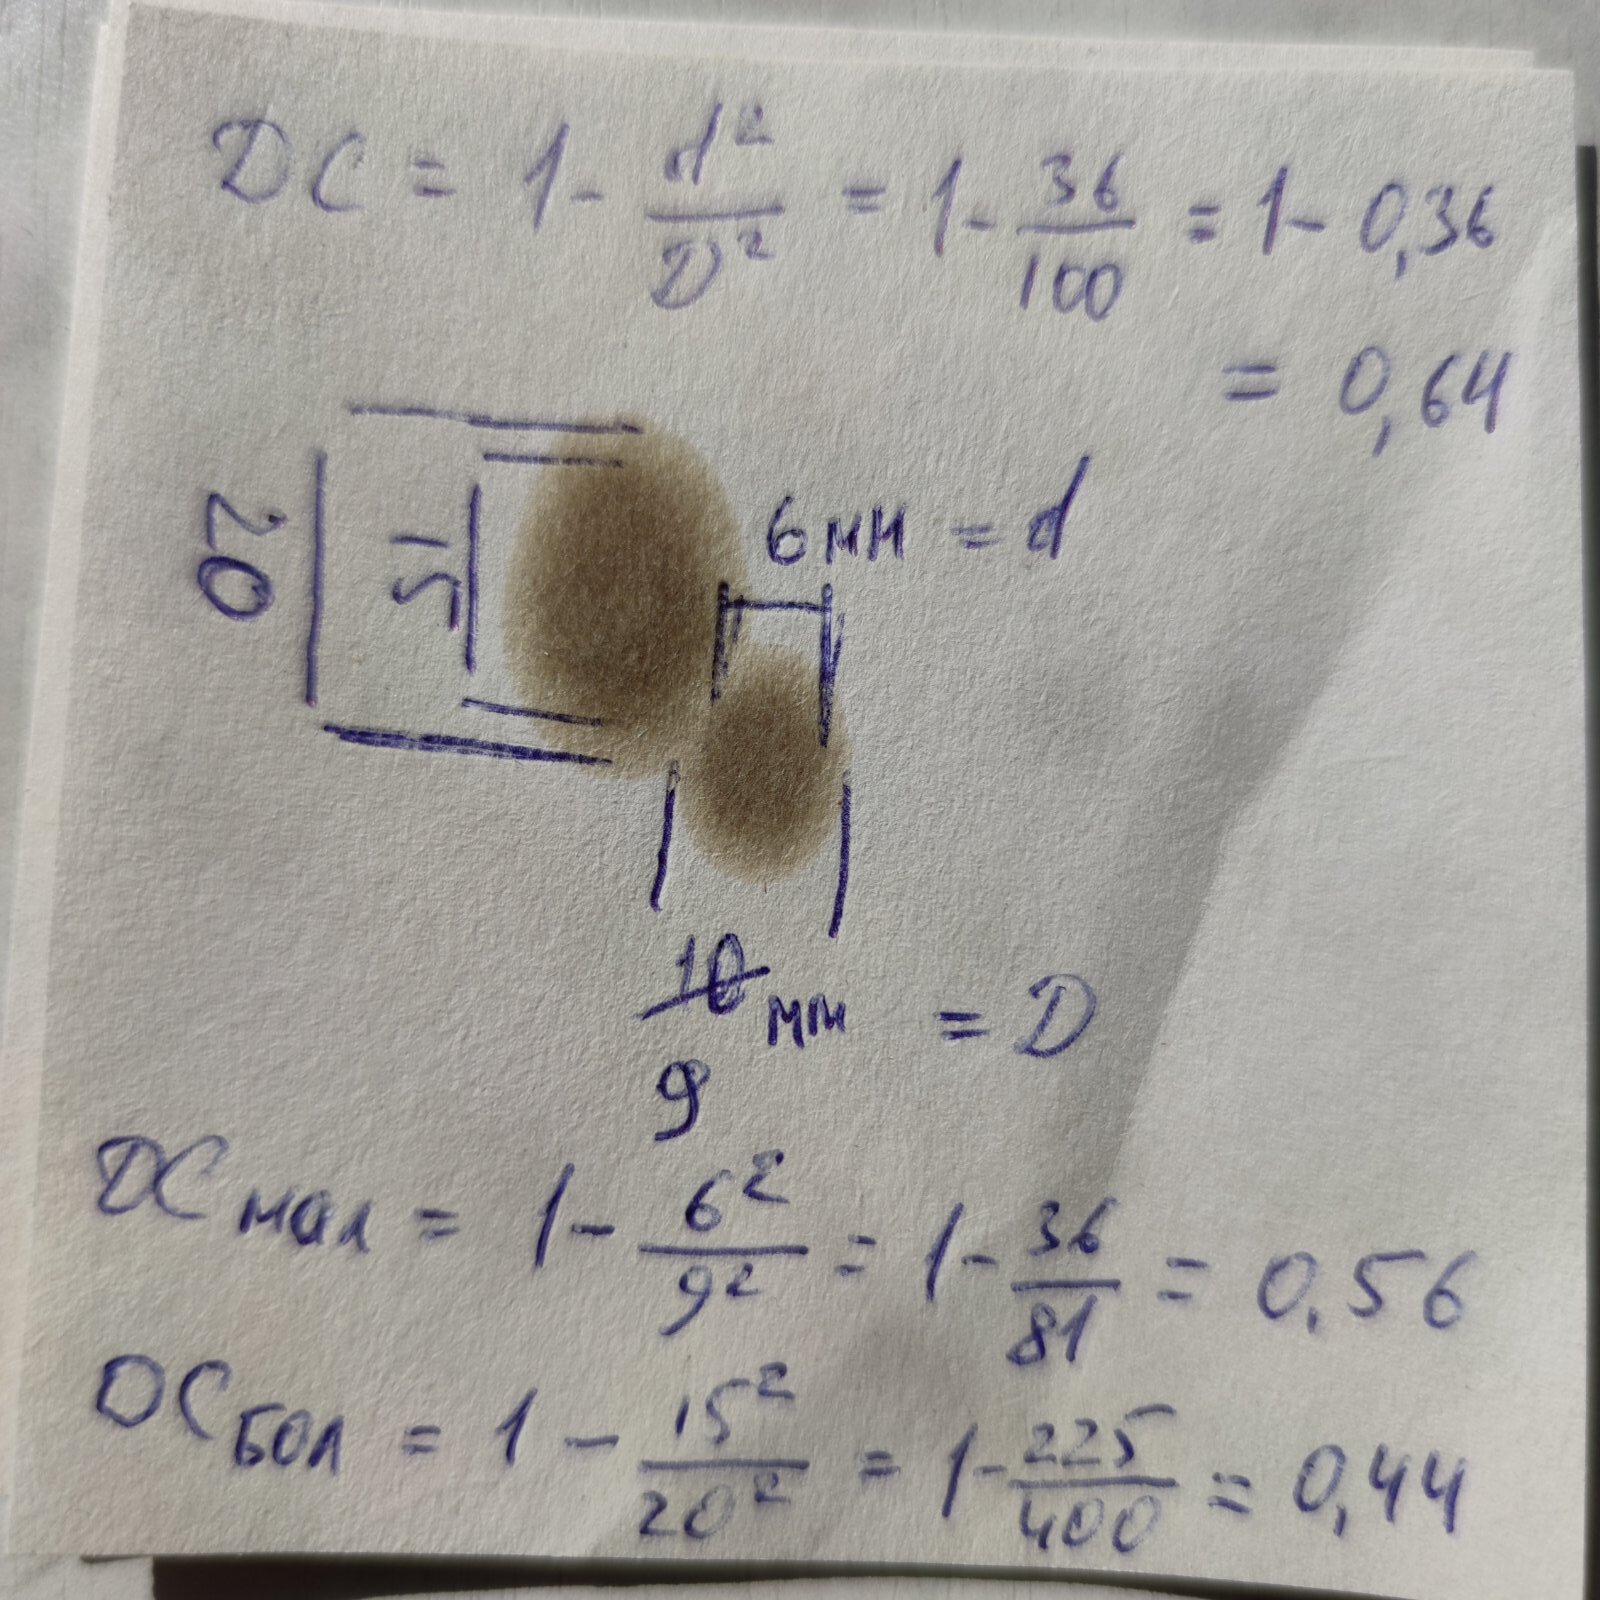 ДС = 1 - d²/D² = 1 - 36/100 = 1 - 0,36
= 0,64
20 15 6 мм = d
10 мм = D
9
ДС мал = 1 - 6²/9² = 1 - 36/81 = 0.56
ДС БОЛ = 1 - 15²/20² = 1 - 225/400 = 0,44